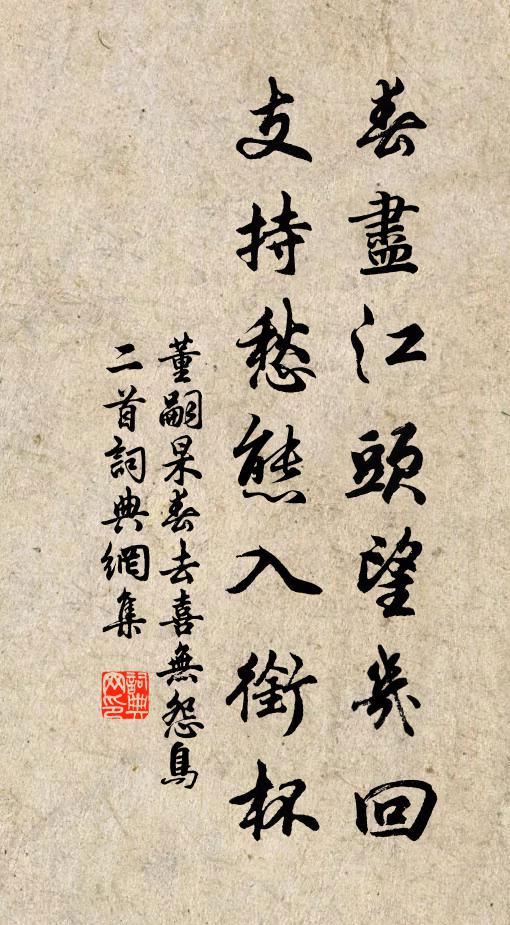 春盡江頭望幾回
支持愁態入銜杯
董嗣杲春去喜無怨鳥
二首詞典網集
詞典
网印